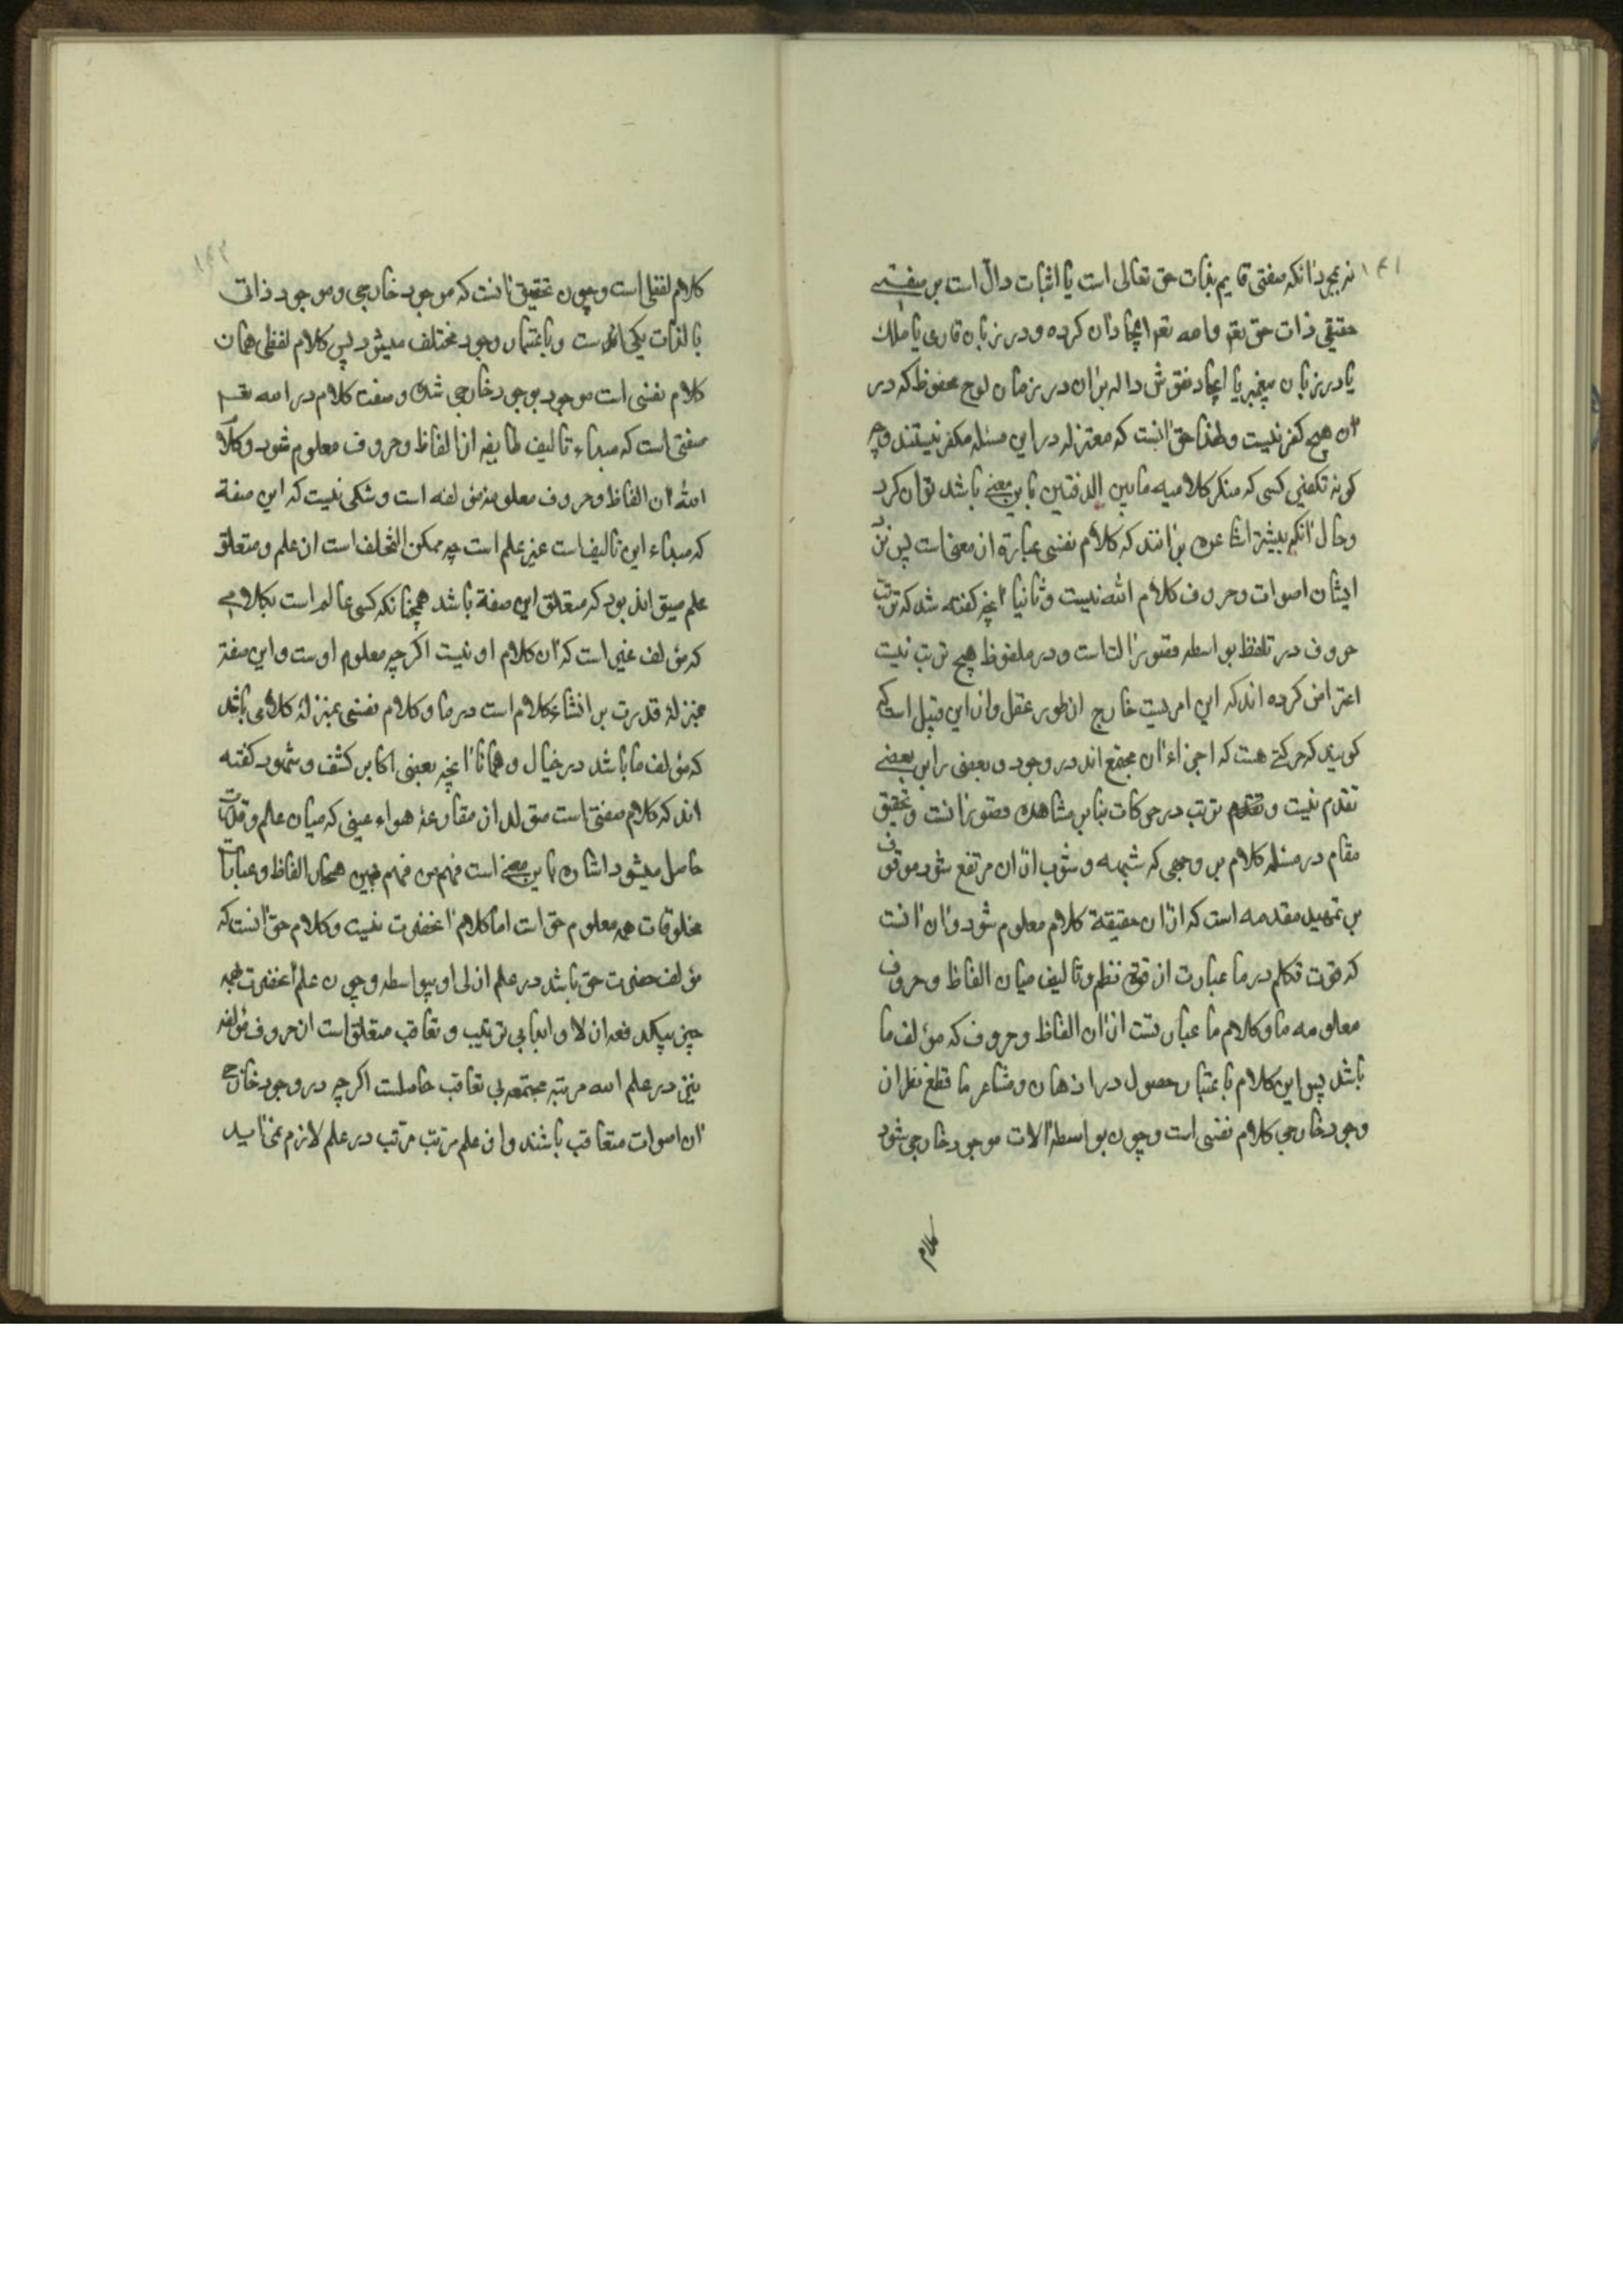 ۱۴۱
نه بمجرد آنکه صفتی قایم بذات حق تعالی است یا اثبات دال است بر صفتی
حقیقی ذات حق تعم والله تعم ایجاد آن کرده و در زبان قاری یا ملک
یا در زبان پیغمبر یا ایجاد نقوش داله بران در زمان لوح محفوظ که در
آن هیچ کفر نیست و لهذا حق آنست که معتزله در این مسئله مکفر نیستند وچه
کونه تکفیر کسی که منکر کلامیه مابین الدفتین باین معنی باشد توان کرد
و حال آنکه بیشتر اشاعره برانند که کلام نفسی عبارة از معنی است پس نزد
ایشان اصوات و حروف کلام الله نیست و ثانیا آنچه کفته شد که ترتب
حروف در تلفظ بواسطه قصور آلت است و در ملفوظ هیچ ترتب نیست
اعتراض کرده اند که این امریست خارج از طور عقل و از این قبیل است که
کویند که حرکتی هست که اجزاء آن مجتمع اند در وجود و بعضی را بر بعضی
تقدم نیست و تقدم ترتب در حرکات بنابر مشاهده قصور آنست و تحقیق
مقام در مسئله کلام بر وجهی که شبهه و شوب از آن مرتفع شود موقوف
بر تمهید مقدمه است که از آن حقیقة کلام معلوم شود و آن آنست
که قوت تکلم در ما عبارت از قوة نظم و تالیف میان الفاظ و حروف
معلومه ما و کلام ما عبارتست از آن الفاظ و حروف که مؤلف ما
باشد پس این کلام باعتبار حصول در اذهان و مشاعر ما قطع نظر از
وجود خارجی کلام نفسی است و چون بواسطه آلات موجود خارجی شود
کلام
۱۴۲
کلام لفظی است و چون تحقیق آنست که موجود خارجی و موجود ذاتی
بالذات یکی است و باعتبار وجود مختلف میشود پس کلام لفظی همان
کلام نفسی است موجود بوجود خارجی شده و صفت کلام در الله تعم
صفتی است که مبداء تالیف طایفه از الفاظ و حروف معلوم شود و کلام
الله آن الفاظ و حروف معلومه مؤلفه است و شکی نیست که این صفة
که مبداء این تالیف است غیر علم است چه ممکن التخلف است از علم و متعلق
علم میتواند بود که متعلق این صفة باشد همچنانکه کسی عالم است بکلامی
که مؤلف غیر است که آن کلام او نیست اکرچه معلوم اوست و این صفة
بمنزله قدرت بر انشاء کلام است در ما و کلام نفسی بمنزله کلامی باشد
که مؤلف ما باشد در خیال و همانا آنچه بعضی اکابر کشف و شهود کفته
اند که کلام صفتی است متولد از مقارعة هواء عینی که میان علم و قدرت
حاصل میشود اشارت باین معنی است فهم من فهم پس همچنان الفاظ و عبارات
مخلوقات همه معلوم حق است اما کلام آنحضرت نیست و کلام حق آنست که
مؤلف حضرت حق باشد در علم ازلی او بیواسطه و چون علم آنحضرت بهمه
چیز بیکدفعه ازلا و ابدا بی ترتیب و تعاقب متعلق است آن حروف مؤلفه
نیز در علم الله مرتبه مجتمعه بی تعاقب حاصلست اکرچه در وجود خارجی
آن اصوات متعاقب باشند و از علم مرتب مرتب در علم لازم نمی آید